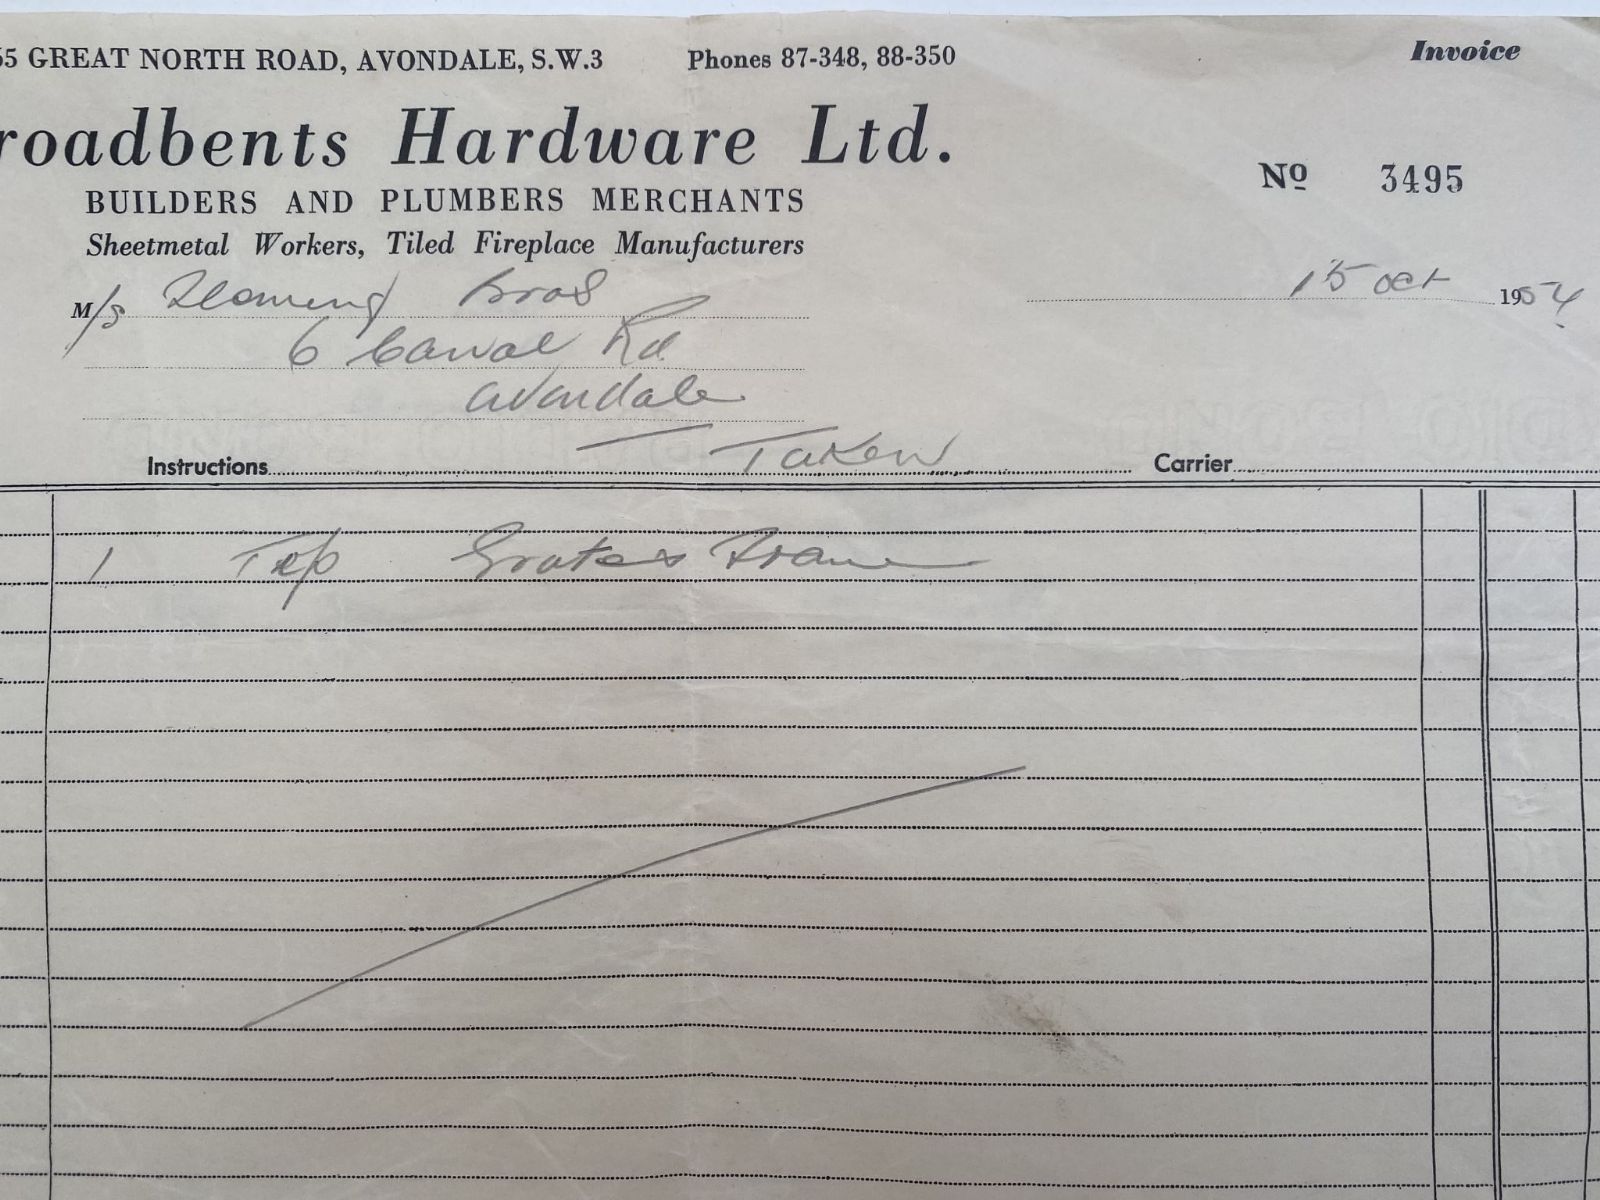 55 GREAT NORTH ROAD, AVONDALE, S.W.3 Phones 87-348, 88-350 Invoice
roadbents Hardware Ltd.
BUILDERS AND PLUMBERS MERCHANTS
Nº 3495
Sheetmetal Workers, Tiled Fireplace Manufacturers
M/s Bros 15 Oct 1954
6 Canal Rd
Avondale
Instructions Taken Carrier
1 Top Grate & Frame